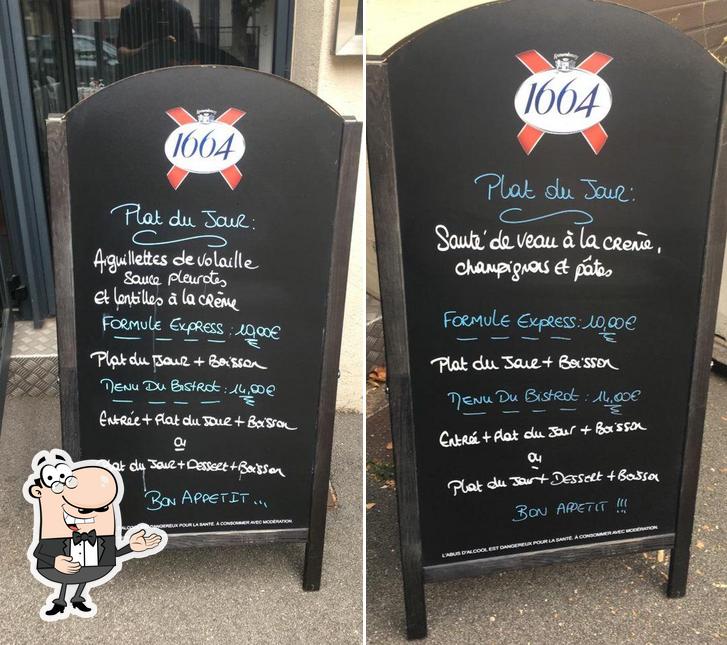 1664
Plat du Jour:
Aiguillettes de volaille
Sauce pleurotes
et lentilles à la crème
FORMULE EXPRESS: 10,00€
Plat du Jour + Boisson
MENU DU BISTROT: 14,00€
Entrée + Plat du Jour + Boisson
ou
Plat du Jour + Dessert + Boisson
BON APPETIT...
DANGEREUX POUR LA SANTÉ. À CONSOMMER AVEC MODÉRATION.
1664
Plat du Jour:
Sauté de veau à la crème,
champignons et pâtes
FORMULE EXPRESS: 10,00€
Plat du Jour + Boisson
MENU DU BISTROT: 14,00€
Entrée + Plat du Jour + Boisson
ou
Plat du Jour + Dessert + Boisson
BON APPETIT !!!
L'ABUS D'ALCOOL EST DANGEREUX POUR LA SANTÉ. À CONSOMMER AVEC MODÉRATION.